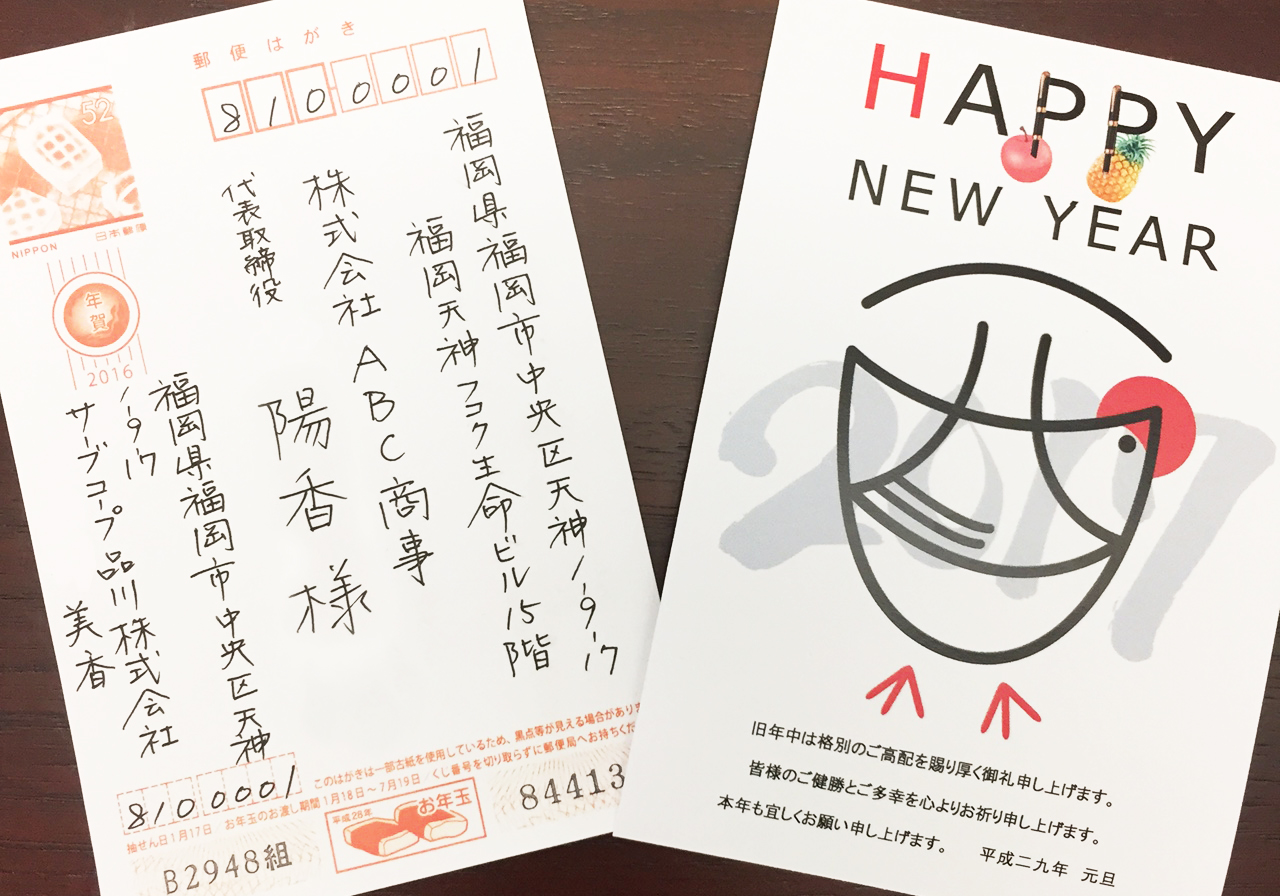 郵便はがき
8100001
52
NIPPON
日本郵便
年賀
2016
福岡県福岡市中央区天神1-9-17
福岡天神フコク生命ビル15階
株式会社ABC商事
代表取締役
陽香様
福岡県福岡市中央区天神
1-9-17
サーブコープ品川株式会社
美香
8100001
このはがきは一部古紙を使用しているため、黒点等が見える場合があります
抽せん日1月17日 お年玉のお渡し期間1月18日～7月19日/くじ番号を切り取らずに郵便局へお持ちくだ
平成28年
お年玉
B2948組
84413
HAPPY
NEW YEAR
2017
旧年中は格別のご高配を賜り厚く御礼申し上げます。
皆様のご健勝とご多幸を心よりお祈り申し上げます。
本年も宜しくお願い申し上げます。
平成二九年 元旦